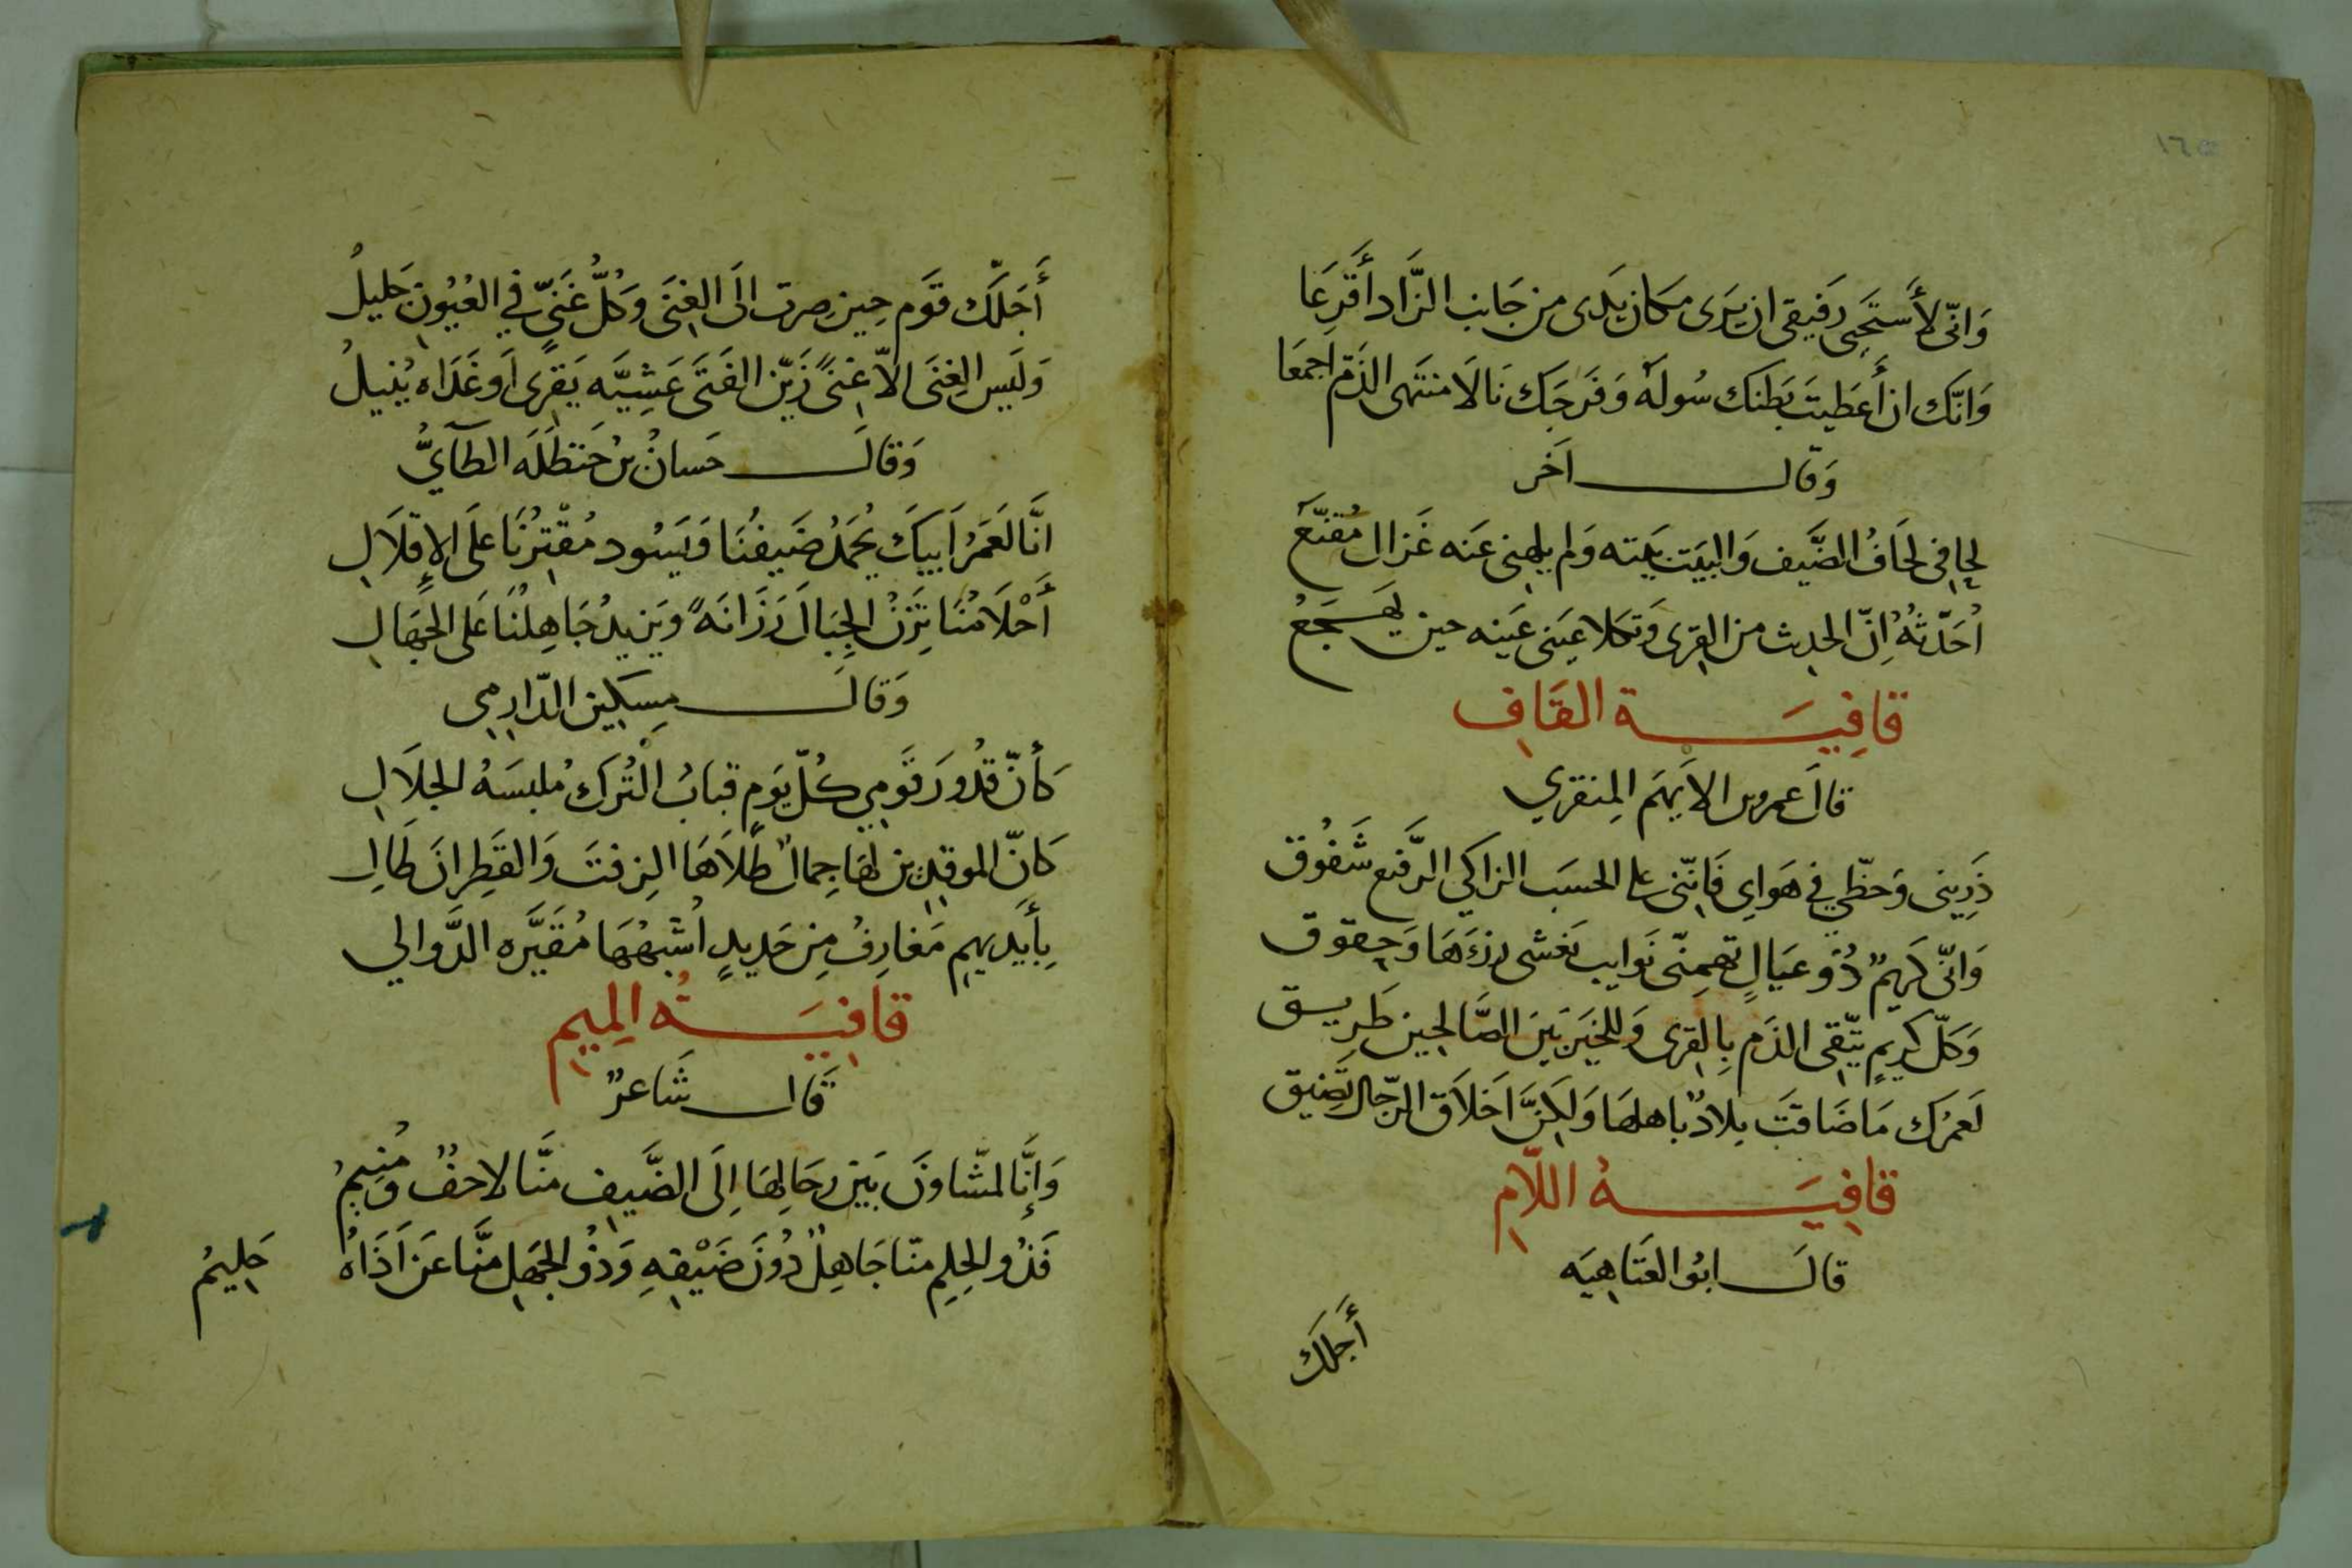 وَانّى لأَستَحَيى رَفيقى ان يَرَى مكان يَدى من جَانب الزَّاد أَقرَعَا
وَانّك ان أَعطيتَ بَطنك سُولَهُ وَفَرجَك نَالَا منتهى الذّمّ اجمعَا
وَقال اَخر
لحافى لحَافُ الضَّيف وَالبيَت بَيته وَلم يلهنى عَنه غَزال مُقنّعَ
اُحَدّثُهُ إنّ الحديث من القرى وَتكلا عينى عَينه حين يَهجَعُ
قافِيَة القَاف
قالَ عمرو بن الأَيهَم المِنقري
ذَرِينى وَحظّي في هَواي فَانّنى على الحسَب الزاكي الرَّفيع شَفُوق
وَانّى كَريمٌ ذُو عيَالٍ تهمِنّى نَوايب يَغشى رزءَهَا وَحقوق
وَكلّ كريمٍ يتّقى الذَم بِالقرى وَللخَير بَين الصَّالحين طَريق
لَعمرُك مَا ضَاقَت بلادٌ باهلهَا وَلكنّ اخلَاق الرّجَال تَضيق
قافِيَةُ اللَّامِ
قالَ ابُو العتَاهيَه
أَجلّك
١٦٥
أَجَلّك قوَم حِين صِرت الَى الغِنَى وَكُلُّ غَنىٍّ في العُيُون جَليلُ
وَلَيس الغِنَى الّا غِنىً زَيّن الفَتَى عَشِيَّه يَقرِى اَو غَدَاه يُنيلُ
وَقالَ حَسانُ بنُ حَنظَلَه الطَآيُّ
انَّا لَعَمرُ اَبيكَ يُحمَدُ ضَيفُنَا وَيَسُود مُقتِرُنَا عَلَى الإقلَال
أَحْلَامُنَا تَزنُ الجِبَالَ رَزَانَهً وَيَزيدُ جَاهِلُنَا عَلى الجهَّال
وَقالَ مِسكين الدّارمِى
كَأنّ قدُورَ قَومِي كُلّ يَومٍ قبابُ التُرك مُلبسَهُ الجلَال
كَانّ الموقدِين لهَا جِمالٌ طَلَاهَا الزِفتَ وَالقَطِرانَ طَالِ
بِأَيَديهِم مَغارِفُ مِن حَديدٍ اُشَبّهُهَا مُقَيَّره الدَّوالي
قافيَةُ المِيمِ
قَال شَاعرٌ
وَإنَّا لمشّاونَ بَين رحَالِهَا إلَى الضَّيف منَّا لاحفٌ وَمُنيمُ
فَذُو الحِلمِ منّا جَاهِلٌ دُونَ ضَيْفِهِ وَذُو الجهل منَّا عَن اَذَاهُ حَليمُ